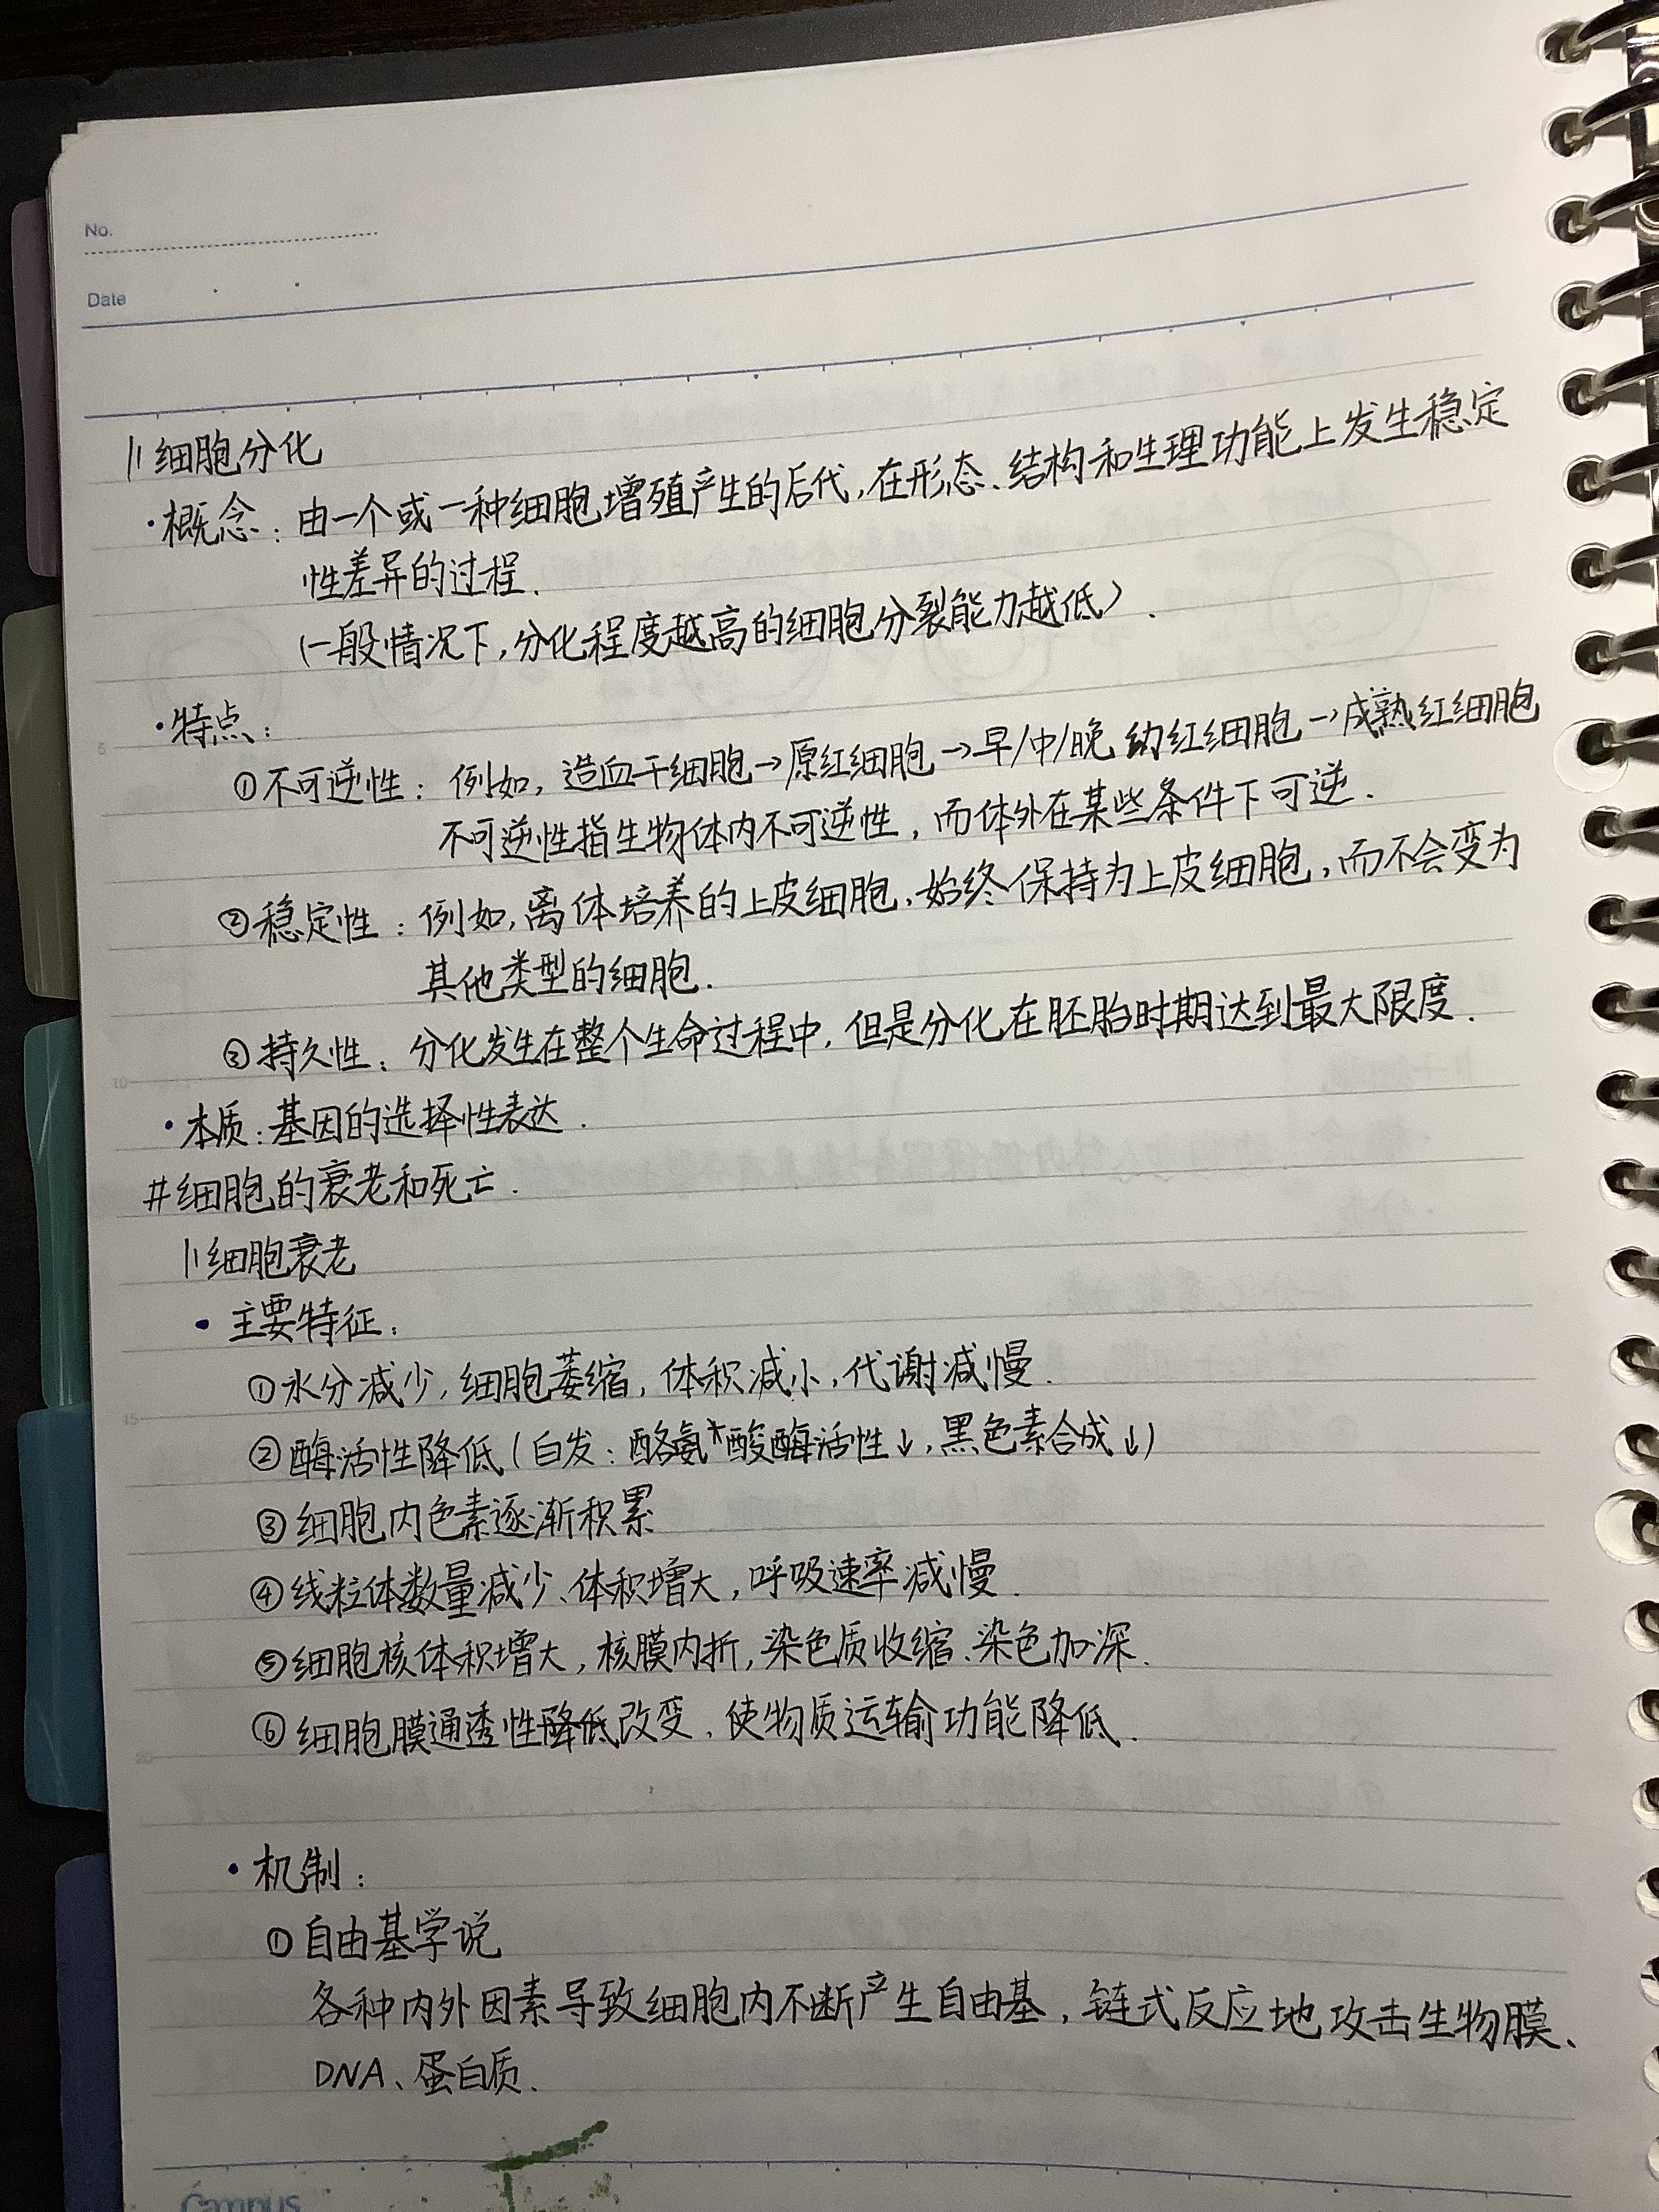 No.
Date
||细胞分化
·概念：由一个或一种细胞增殖产生的后代,在形态、结构和生理功能上发生稳定
性差异的过程.
(一般情况下,分化程度越高的细胞分裂能力越低).
·特点：
①不可逆性：例如,造血干细胞→原红细胞→早/中/晚幼红细胞→成熟红细胞
不可逆性指生物体内不可逆性,而体外在某些条件下可逆.
②稳定性：例如,离体培养的上皮细胞,始终保持为上皮细胞,而不会变为
其他类型的细胞.
③持久性：分化发生在整个生命过程中,但是分化在胚胎时期达到最大限度.
·本质：基因的选择性表达.
#细胞的衰老和死亡.
||细胞衰老
·主要特征：
①水分减少,细胞萎缩,体积减小,代谢减慢.
②酶活性降低(白发：酪氨*酸酶活性↓,黑色素合成↓)
③细胞内色素逐渐积累
④线粒体数量减少、体积增大,呼吸速率减慢.
⑤细胞核体积增大,核膜内折,染色质收缩、染色加深.
⑥细胞膜通透性降低改变,使物质运输功能降低.
·机制：
①自由基学说
各种内外因素导致细胞内不断产生自由基,链式反应地攻击生物膜、
DNA、蛋白质.
Campus